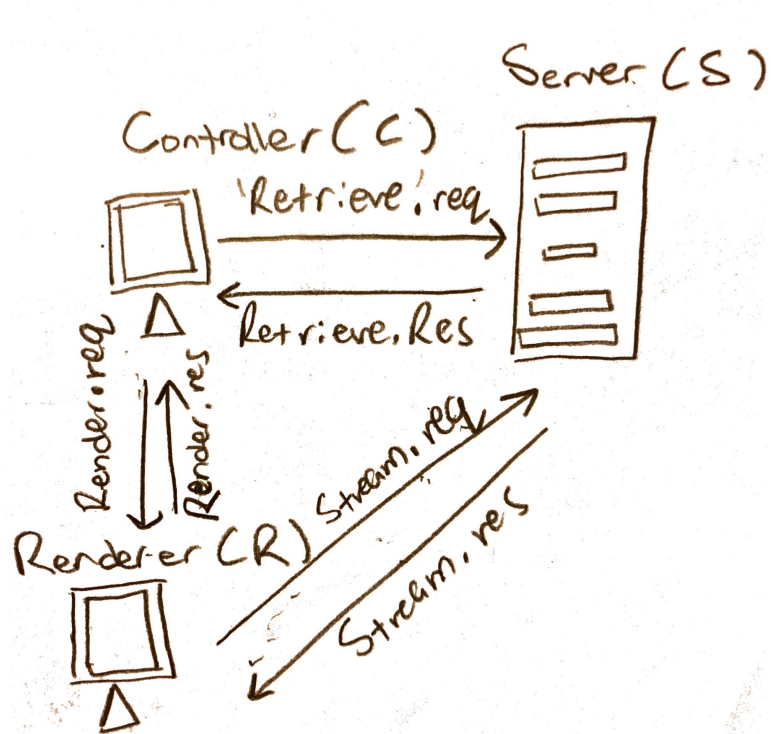 Server (S)
Controller (C)
'Retrieve'.req
Retrieve.Res
Render.req
Render.res
Stream.req
Renderer (R)
Stream.res